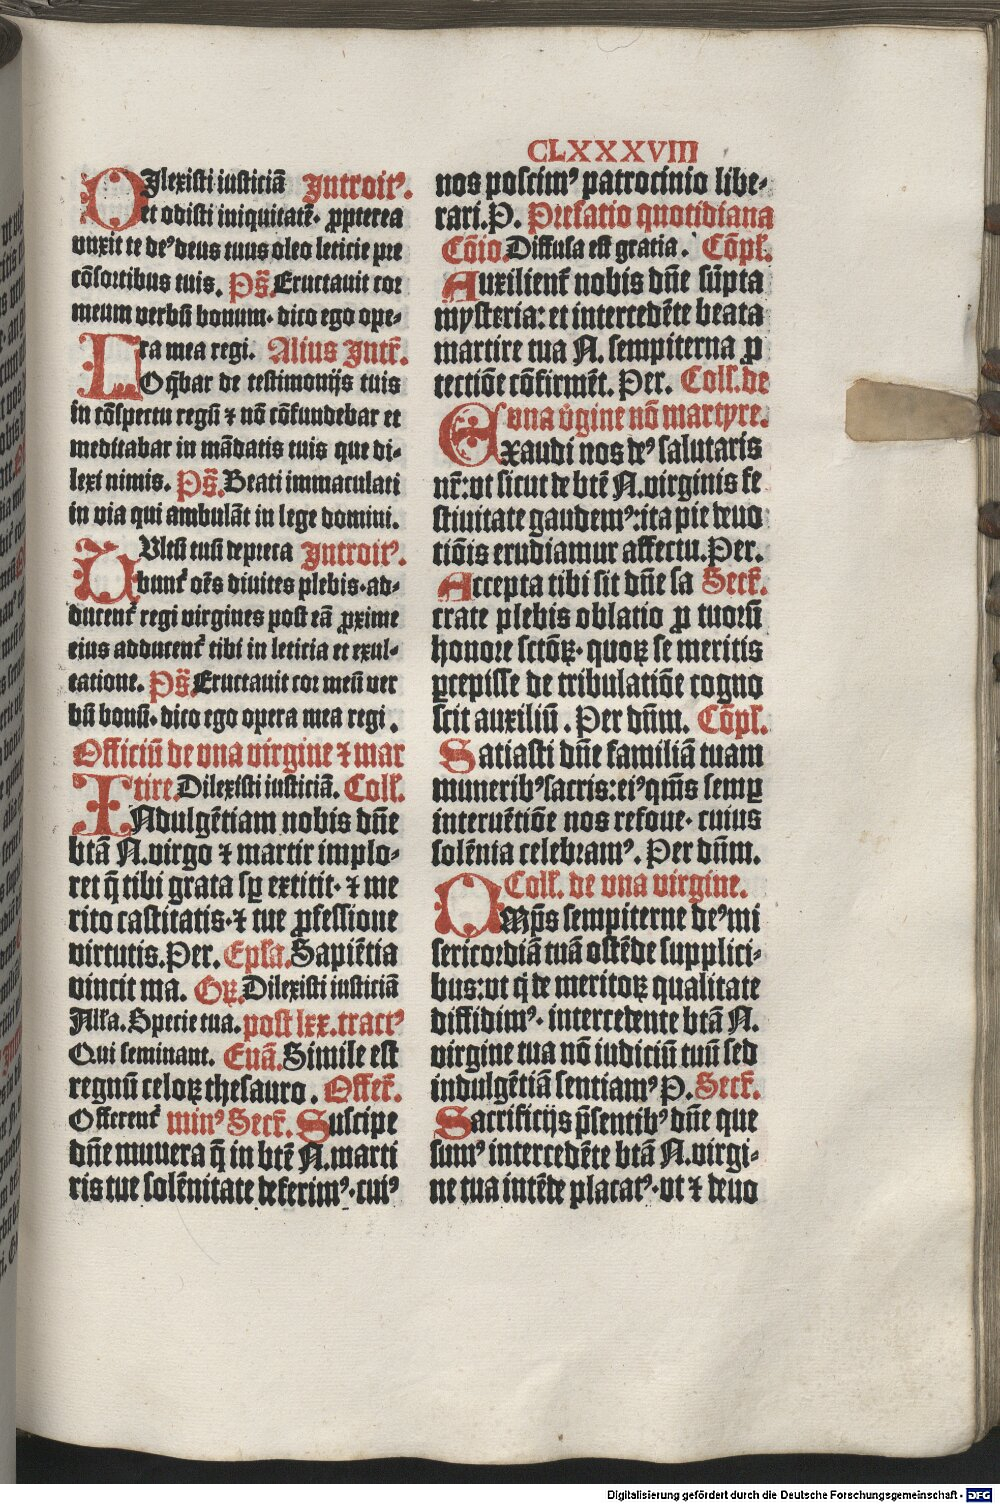 CLXXXVIII
DIlexisti iusticiā Introitꝰ.
et odisti iniquitatē· ꝓpterea
vnxit te deꝰ deus tuus oleo leticie pre
cōsortibus tuis. Ps̄. Eructauit cor
meum verbū bonum· dico ego ope-
ra mea regi. Alius Intr̄.
LOq̄bar de testimonijs tuis
in cōspectu regū ⁊ nō cōfundebar et
meditabar in mādatis tuis que di-
lexi nimis. Ps̄. Beati immaculati
in via qui ambulāt in lege domini.
VUltū tuū depreca Introitꝰ.
buntˀ oēs diuites plebis·ad-
ducentˀ regi virgines post eā ꝓxime
eius adducentˀ tibi in leticia et exul-
tatione. Ps̄. Eructauit cor meū ver
bū bonū· dico ego opera mea regi.
Officiū de vna virgine ⁊ mar
tire. Dilexisti iusticiā. Coll̄.
INdulgētiam nobis dn̄e
btā N. virgo ⁊ martir implo-
ret q̄ tibi grata sꝑ extitit· ⁊ me
rito castitatis·⁊ tue ꝓfessione
virtutis. Per. Ep̄la. Sapiētia
vincit ma. Gꝝ. Dilexisti iusticiā
All̄a. Specie tua. post lxx. tractꝰ
Qui seminant. Euā. Simile est
regnū celoꝝ thesauro. Offer̄.
Offerentˀ minꝰ Secr̄. Suscipe
dn̄e munera q̄ in btē N. marti
ris tue solēnitate deferimꝰ· cuiꝰ
nos poscimꝰ patrocinio libe-
rari. P. Prefatio quotidiana
Cōio. Diffusa est gratia. Cōpl̄.
Auxilientˀ nobis dn̄e sūpta
mysteria: et intercedēte beata
martire tua N. sempiterna ꝓ
tectiōe cōfirmēt. Per. Coll̄. de
vna v̄gine nō martyre.
Exaudi nos deꝰ salutaris
nr̄: vt sicut de btē N. virginis fe
stiuitate gaudemꝰ: ita pie deuo
tiōis erudiamur affectu. Per.
Accepta tibi sit dn̄e sa Secr̄.
crate plebis oblatio ꝓ tuorū
honore sctōꝝ· quoꝝ se meritis
ꝑcepisse de tribulatiōe cogno
scit auxiliū. Per dn̄m. Cōpl̄.
Satiasti dn̄e familiā tuam
muneribꝰ sacris: eiꝰ qm̄s semꝑ
interuētiōe nos refoue· cuius
solēnia celebramꝰ. Per dn̄m.
Coll̄. de vna virgine.
OMp̄s sempiterne deꝰ mi
sericordiā tuā ostēde supplici-
bus: vt q̄ de meritoꝝ qualitate
diffidimꝰ· intercedente btā N.
virgine tua nō iudiciū tuū sed
indulgētiā sentiamꝰ P. Secr̄.
Sacrificijs p̄sentibꝰ dn̄e que
sumꝰ intercedēte btā N. virgi-
ne tua intēde placatꝰ· vt ⁊ deuo
Digitalisierung gefördert durch die Deutsche Forschungsgemeinschaft - DFG